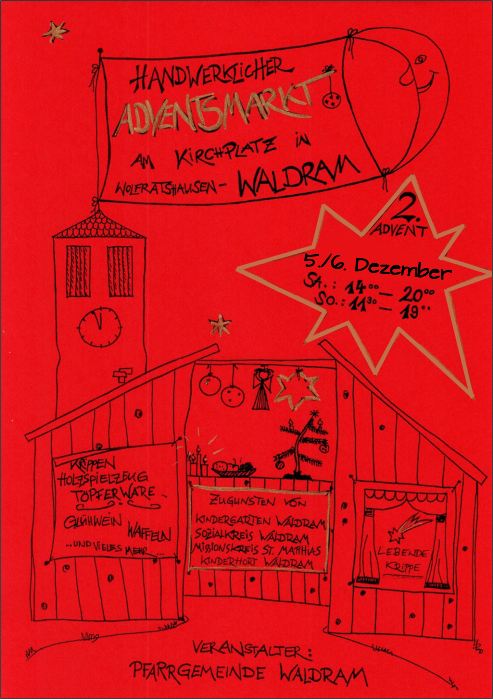 HANDWERKLICHER
ADVENTSMARKT
AM KIRCHPLATZ IN
WOLFRATSHAUSEN- WALDRAM
2.
ADVENT
5./6. Dezember
SA.: 14⁰⁰ — 20⁰⁰
SO.: 11³⁰ — 19⁰⁰
KRIPPEN
HOLZSPIELZEUG
TÖPFERWARE
GLÜHWEIN WAFFELN
...UND VIELES MEHR...
ZUGUNSTEN VON
KINDERGARTEN WALDRAM
SOZIALKREIS WALDRAM
MISSIONSKREIS ST. MATTHIAS
KINDERHORT WALDRAM
LEBENDE
KRIPPE
VERANSTALTER:
PFARRGEMEINDE WALDRAM